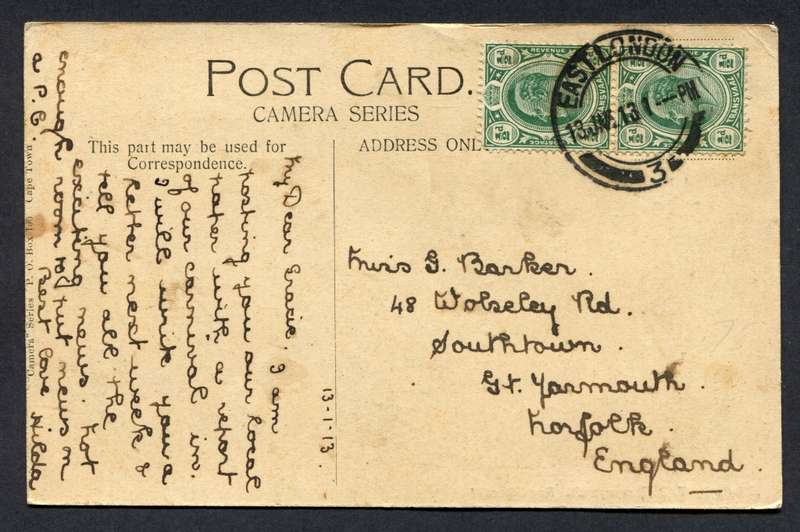 POST CARD.
CAMERA SERIES
This part may be used for
Correspondence.
ADDRESS ONL
REVENUE
POSTAGE
TRANSVAAL
EAST LONDON
13 JAN 13
PM
3
13-1-13.
My Dear Gracie. I am
posting you our local
paper with a report
of our carnival in.
I will write you a
letter next week &
tell you all the
exciting news. Not
enough room to put news on
a P.C. Best love Hilda
Miss G. Barker.
48 Wolseley Rd.
Southtown.
Gt. Yarmouth.
Norfolk.
England.
"Camera" Series P. O. Box Cape Town